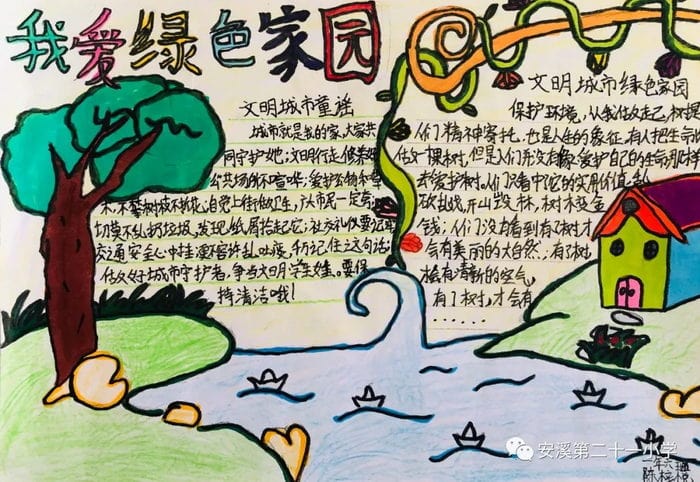 我爱绿色家园
文明城市童谣
城市就是我的家,大家共
同守护她;文明行走
公共场所不喧哗;爱护公物和草
木,不攀树枝不折花;自觉上街做卫生,
切莫乱扔垃圾,发现纸屑拾起它;
交通安全心中挂;
做好城市守护者,争当文明学生
持清洁哦!
文明城市绿色家园
保护环境,从我做起,树
人们精神寄托,也是人生的象征,有人把生命
做一棵树,但是人们并没有像爱护自己的生命那样
去爱护树。人们只看中它的实用价值,乱
砍乱伐,开山毁林,树木换金
钱;人们没有看到有了树才
会有美丽的大自然,有了树
才会有清新的空气,
有了树,才会有
......
安溪第二十一小学